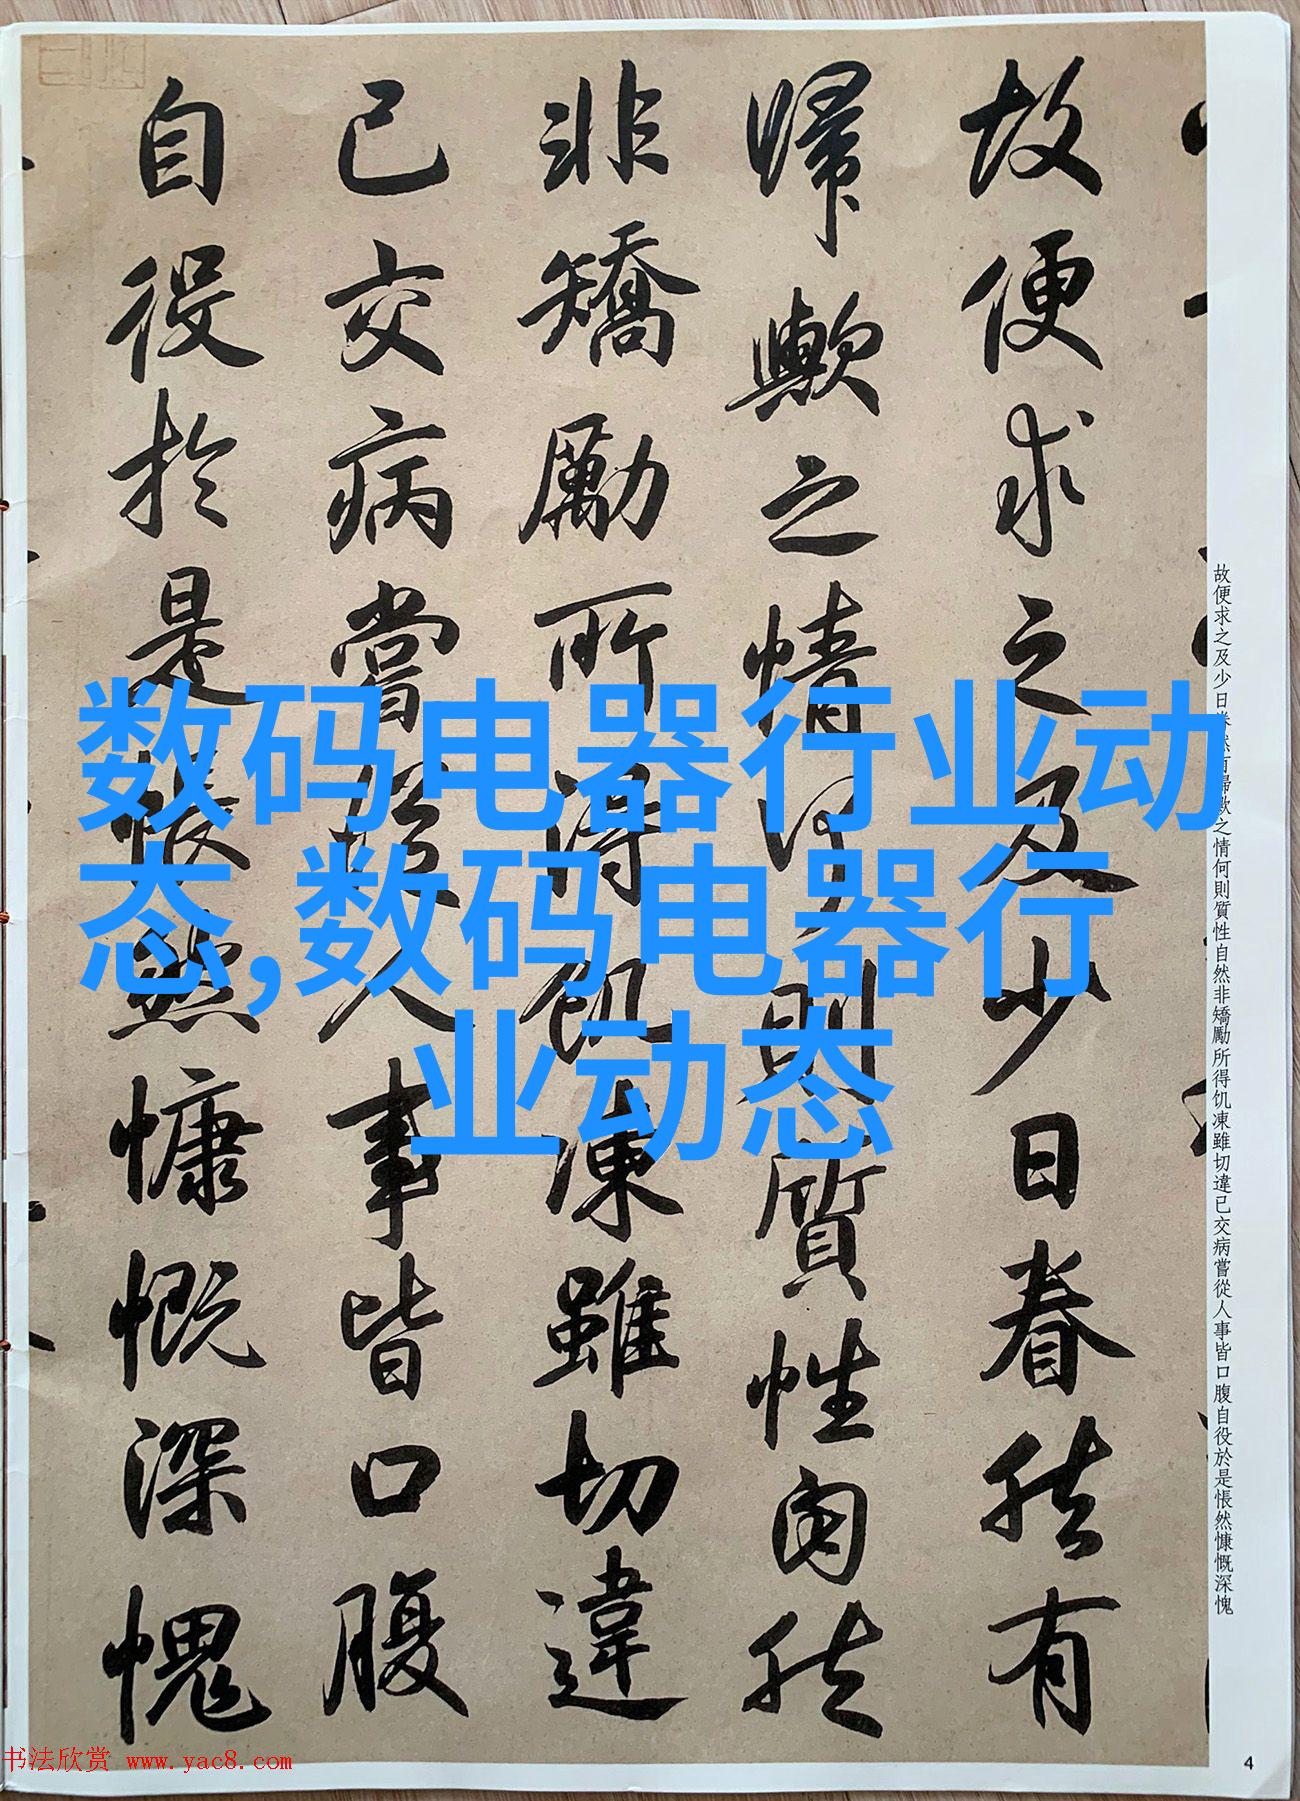 故便求之及少日眷然有
歸歟之情何則質性自然
非矯勵所得飢凍雖切違
己交病嘗從人事皆口腹
自役於是悵然慷慨深愧
数码电器行业动
态,数码电器行
业动态
故便求之及少日眷然有歸歟之情何則質性自然非矯勵所得饥凍雖切違已交病嘗從人事皆口腹自役於是悵然慷慨深愧
书法欣赏 www.yac8.com
4